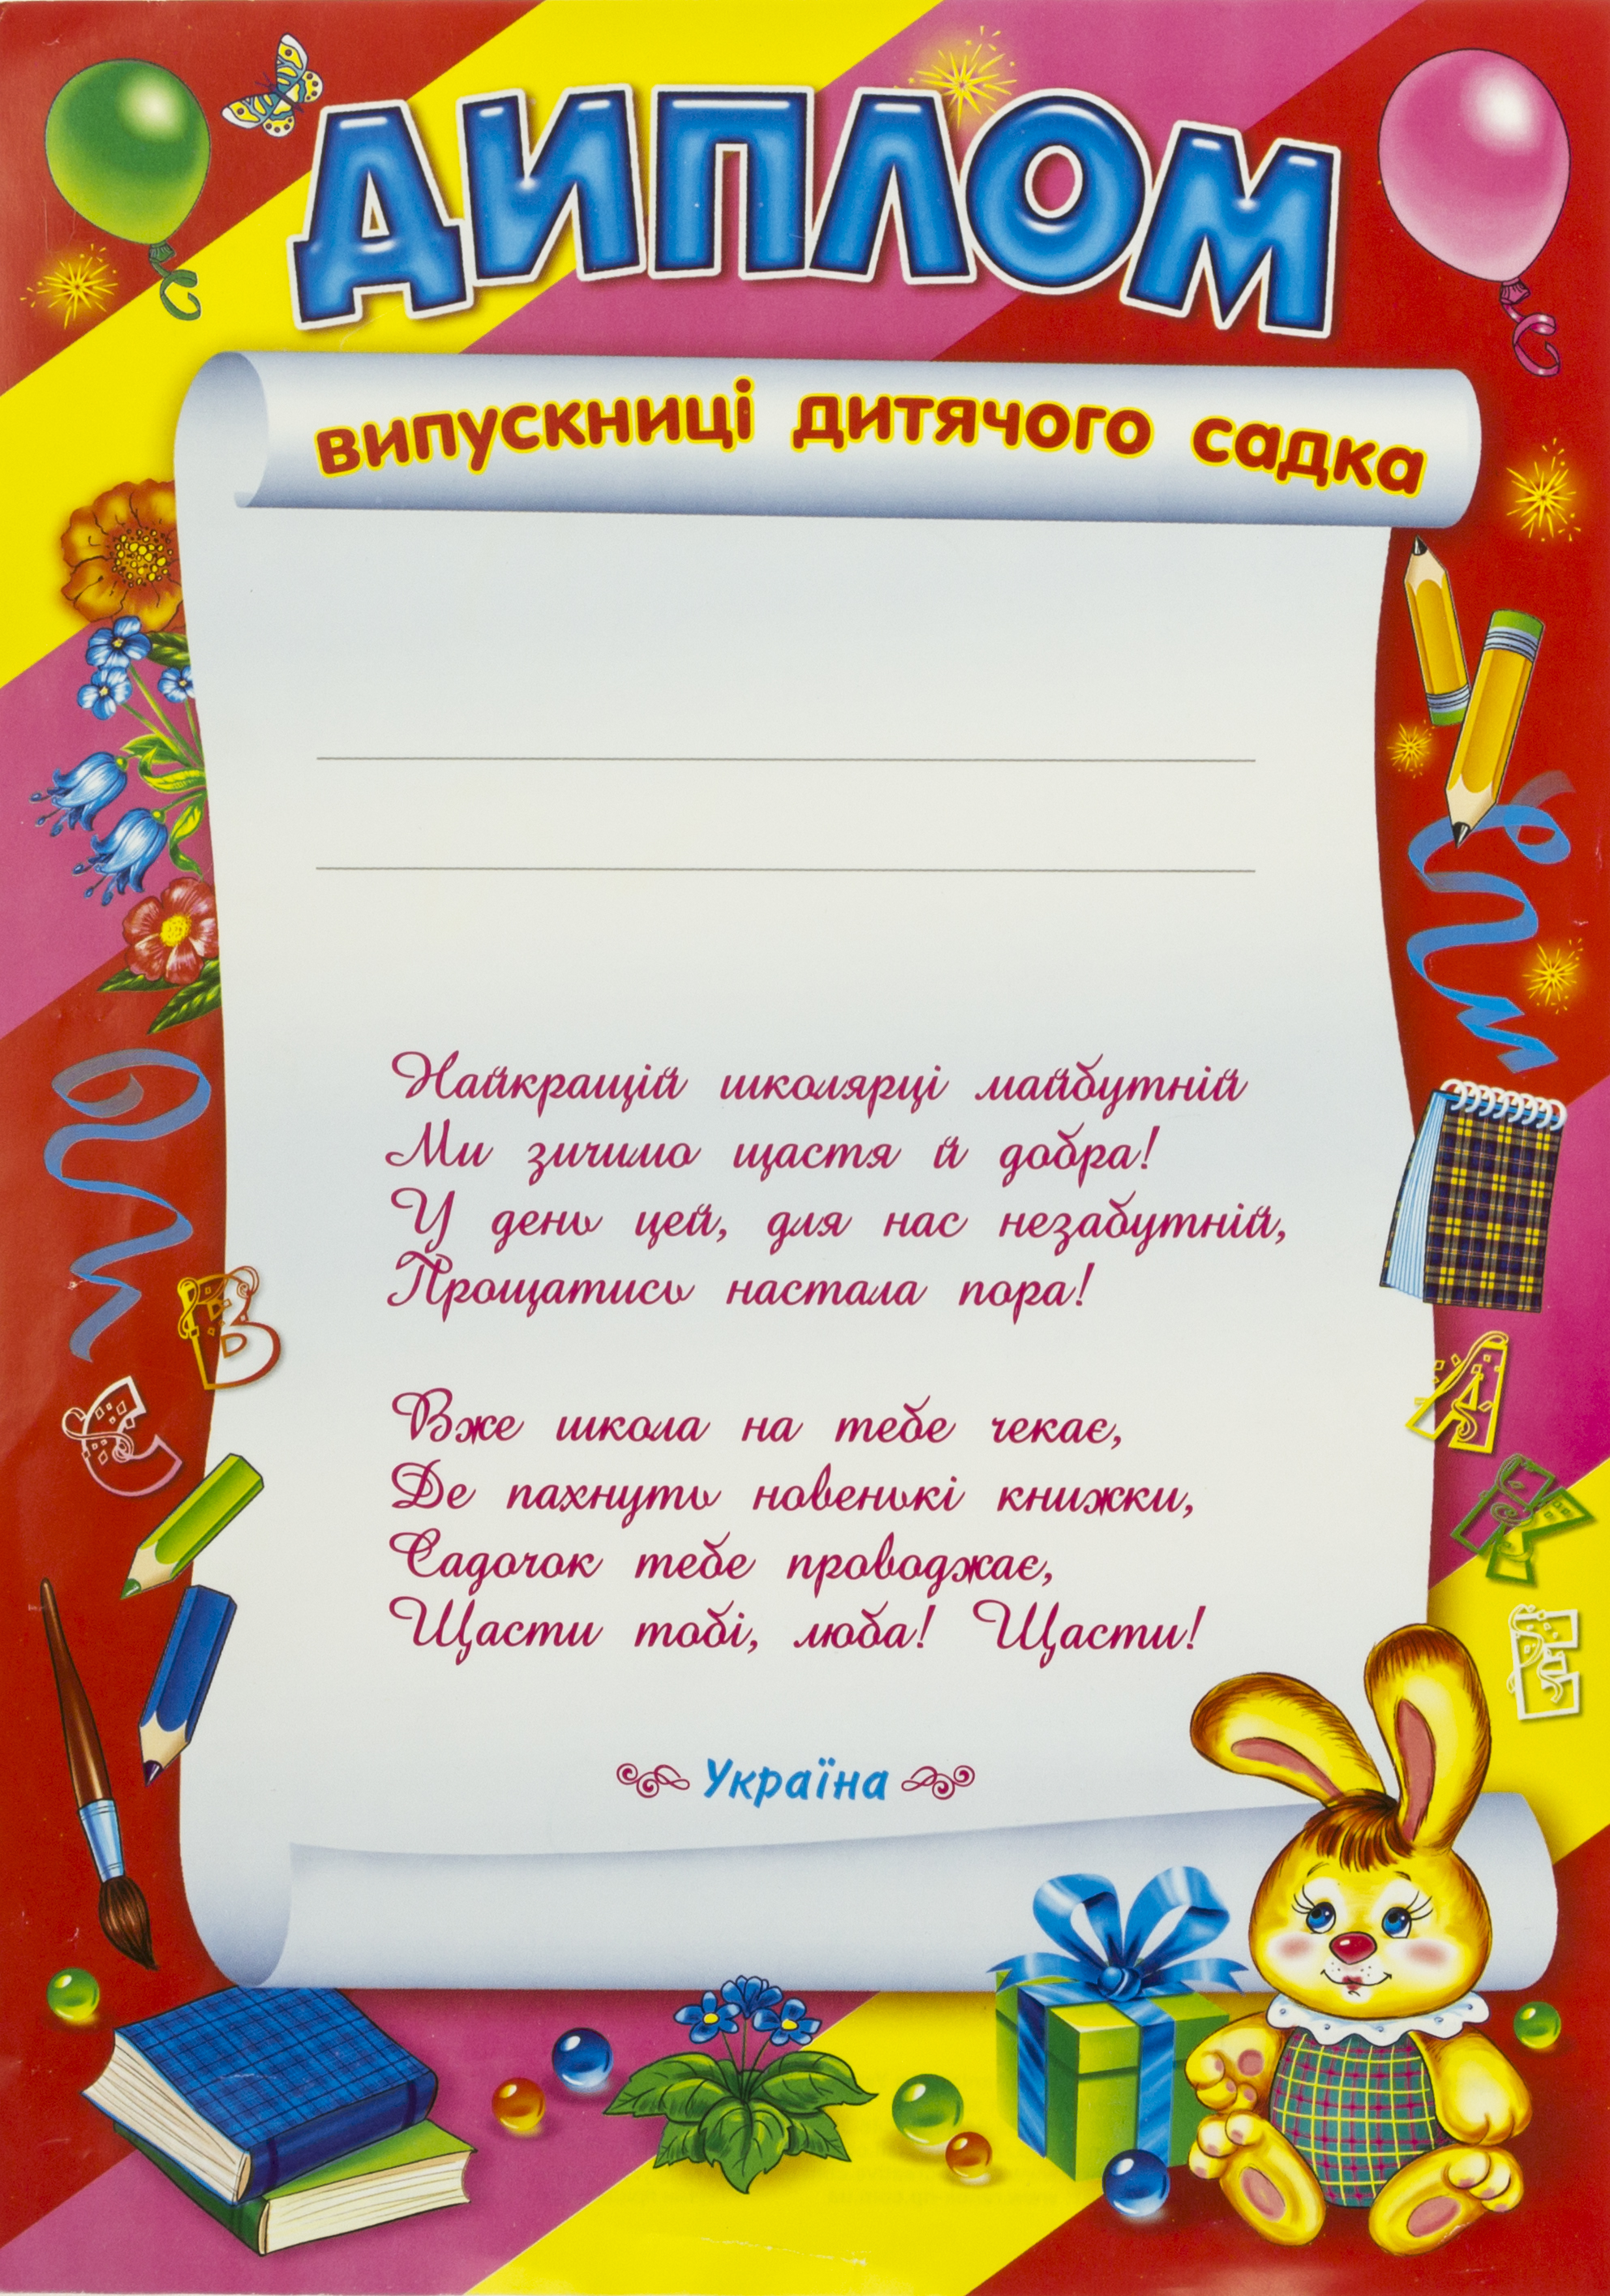 ДИПЛОМ
випускниці дитячого садка
Найкращій школярці майбутній
Ми зичимо щастя й добра!
У день цей, для нас незабутній,
Прощатись настала пора!
Вже школа на тебе чекає,
Де пахнуть новенькі книжки,
Садочок тебе проводжає,
Щасти тобі, люба! Щасти!
Україна
В
А
Є
К
Е